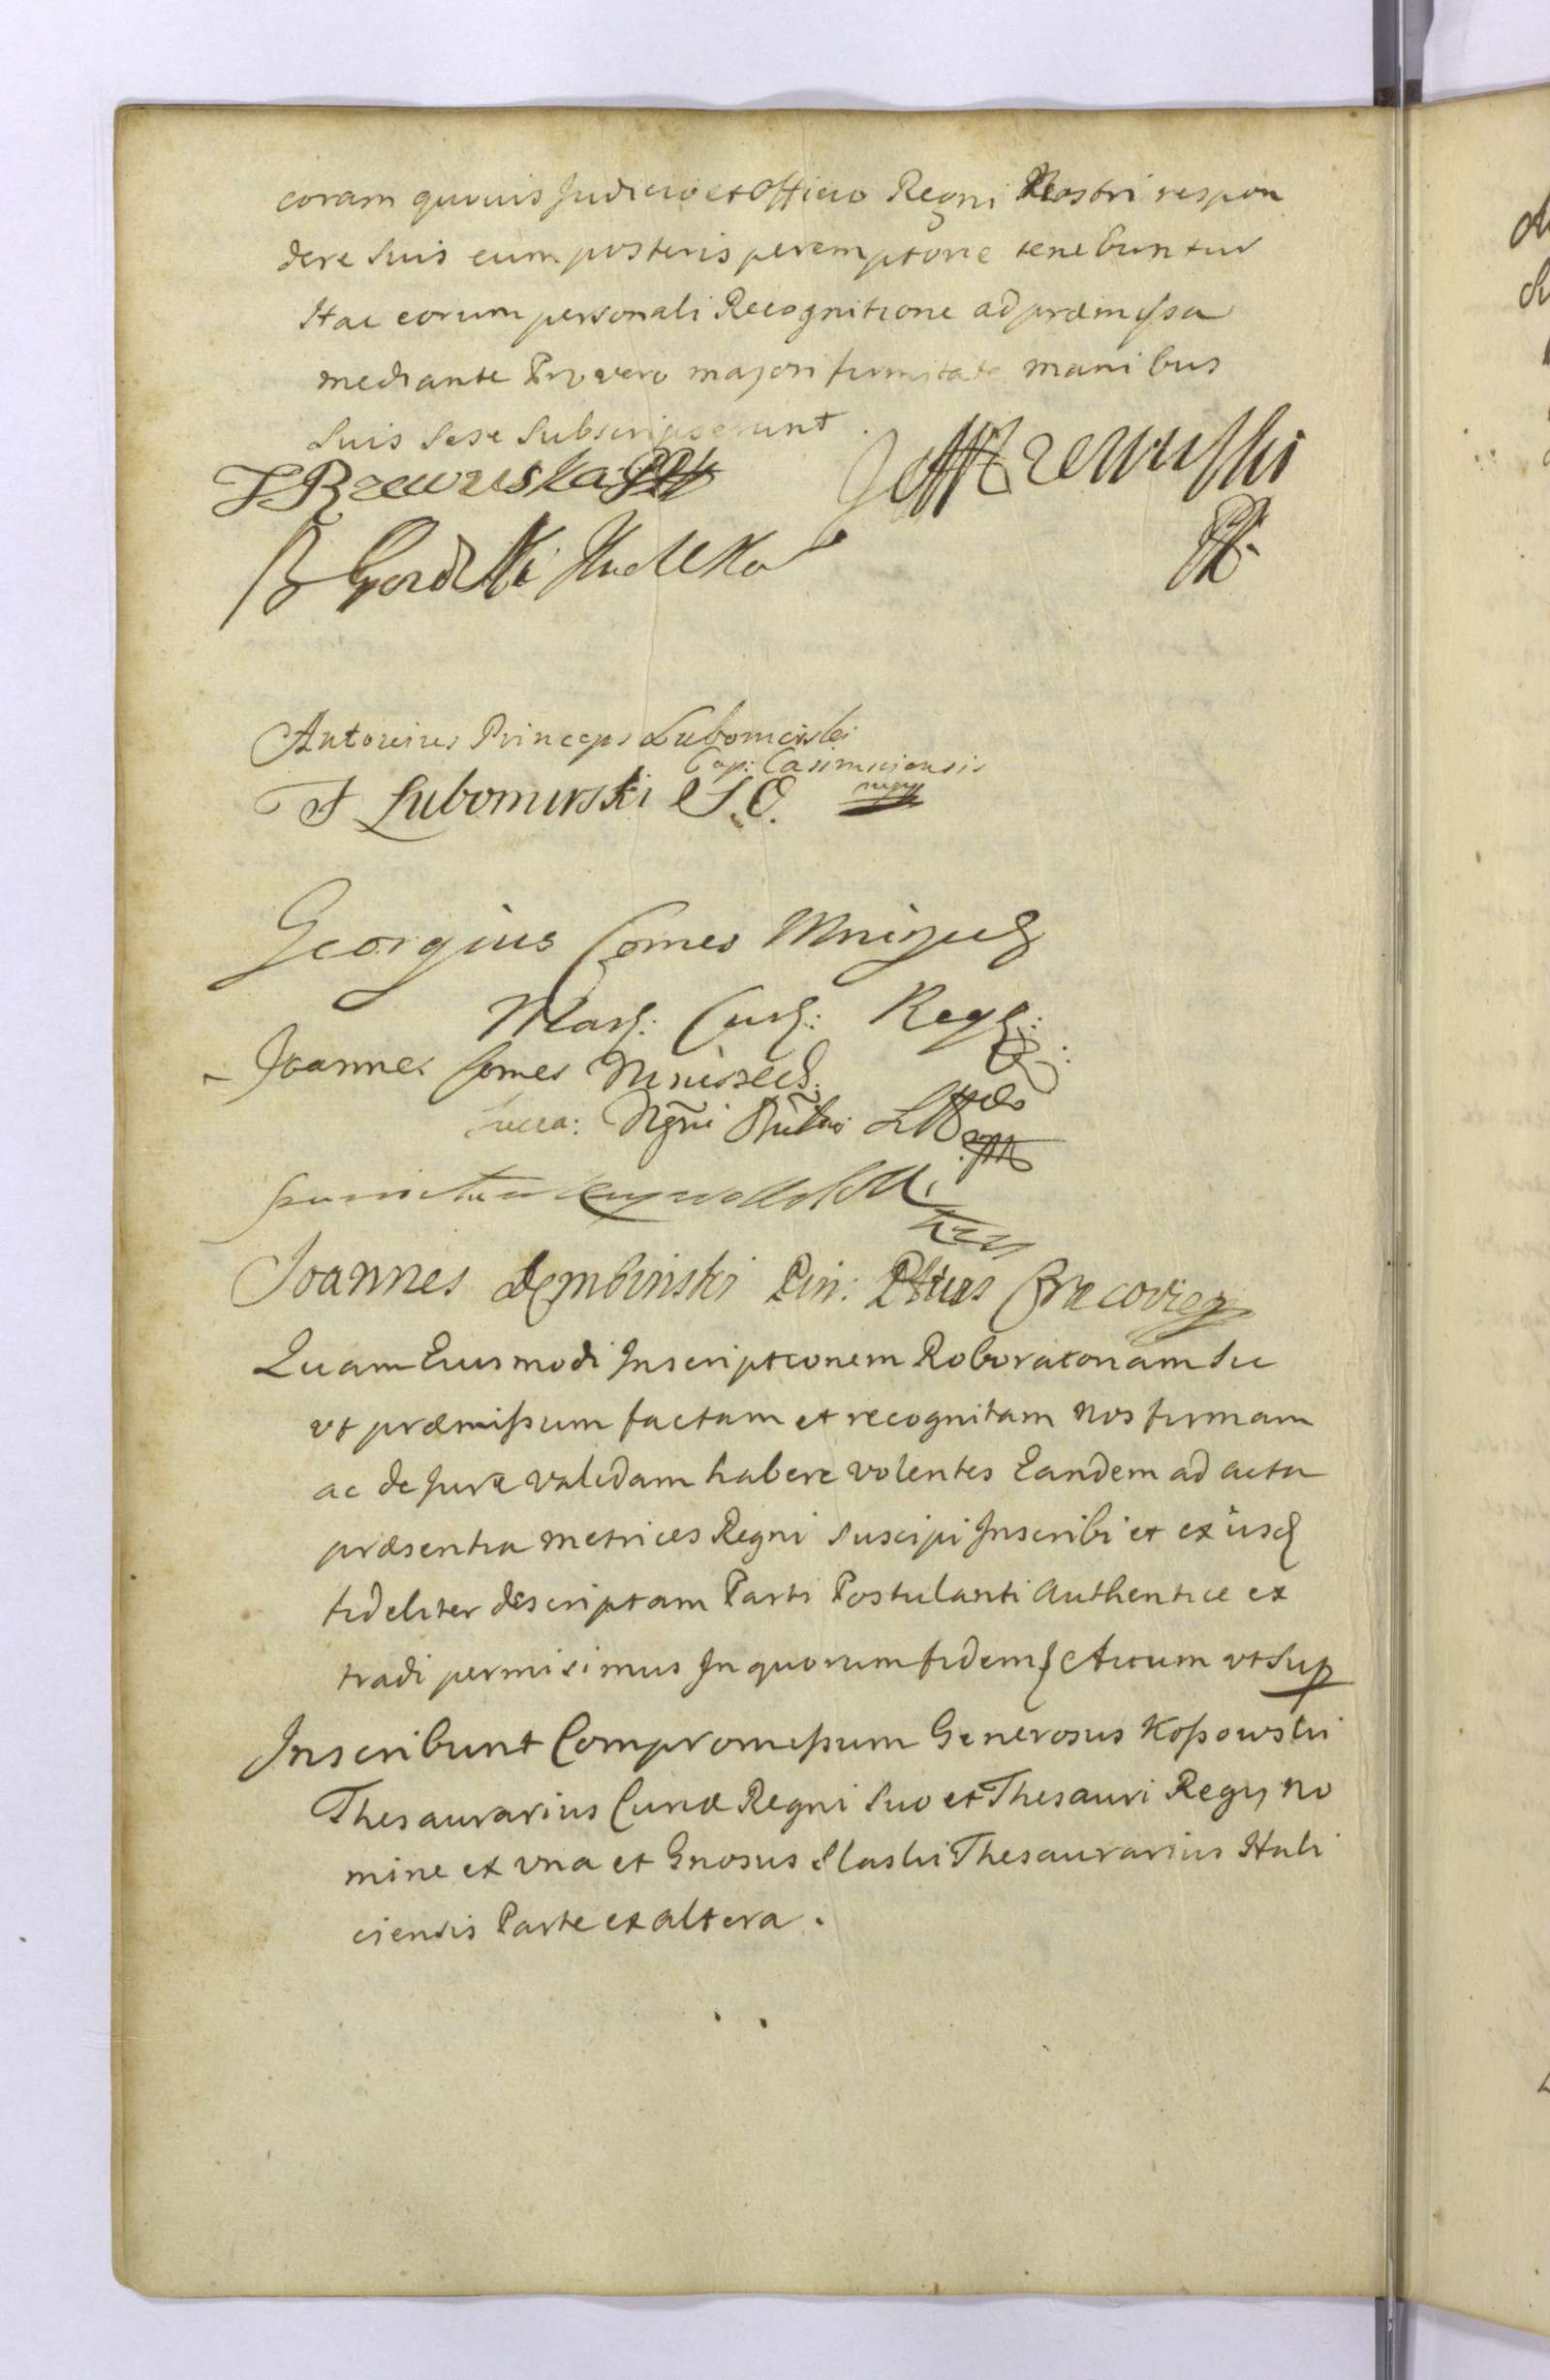 coram quovis Judicio et Officio Regni Nostri respon
dere suis cum posteris peremptorie tenebuntur
Hac eorum personali Recognitione ad præmissa
mediante Pro vero majori firmitate manibus
suis sese subscripserunt.
Rzewuska
Rzewuski
Antonius Princeps Lubomirski
Cap: Casimiriensis
mpp
Lubomirski
Georgius Comes Mniszech
Mars: Cur: Reg:
Joannes Comes Mniszech
Succa:
Joannes Dembinski Cracovien
Quam Eiusmodi Inscriptionem Roboratoriam sic
vt præmissum factam et recognitam nos firmam
ac de Jure validam habere volentes Eandem ad acta
præsentia metrices Regni suscipi Inscribi et ex iisd
fideliter descriptam Parti Postulanti Authentice ex
tradi permisimus In quorum fidem Actum vt sup
Inscribunt Compromissum Generosus Kossowski
Thesaurarius Curiæ Regni suo et Thesauri Regy no
mine ex vna et Gnosus Thesaurarius Hali
ciensis Parte ex altera.